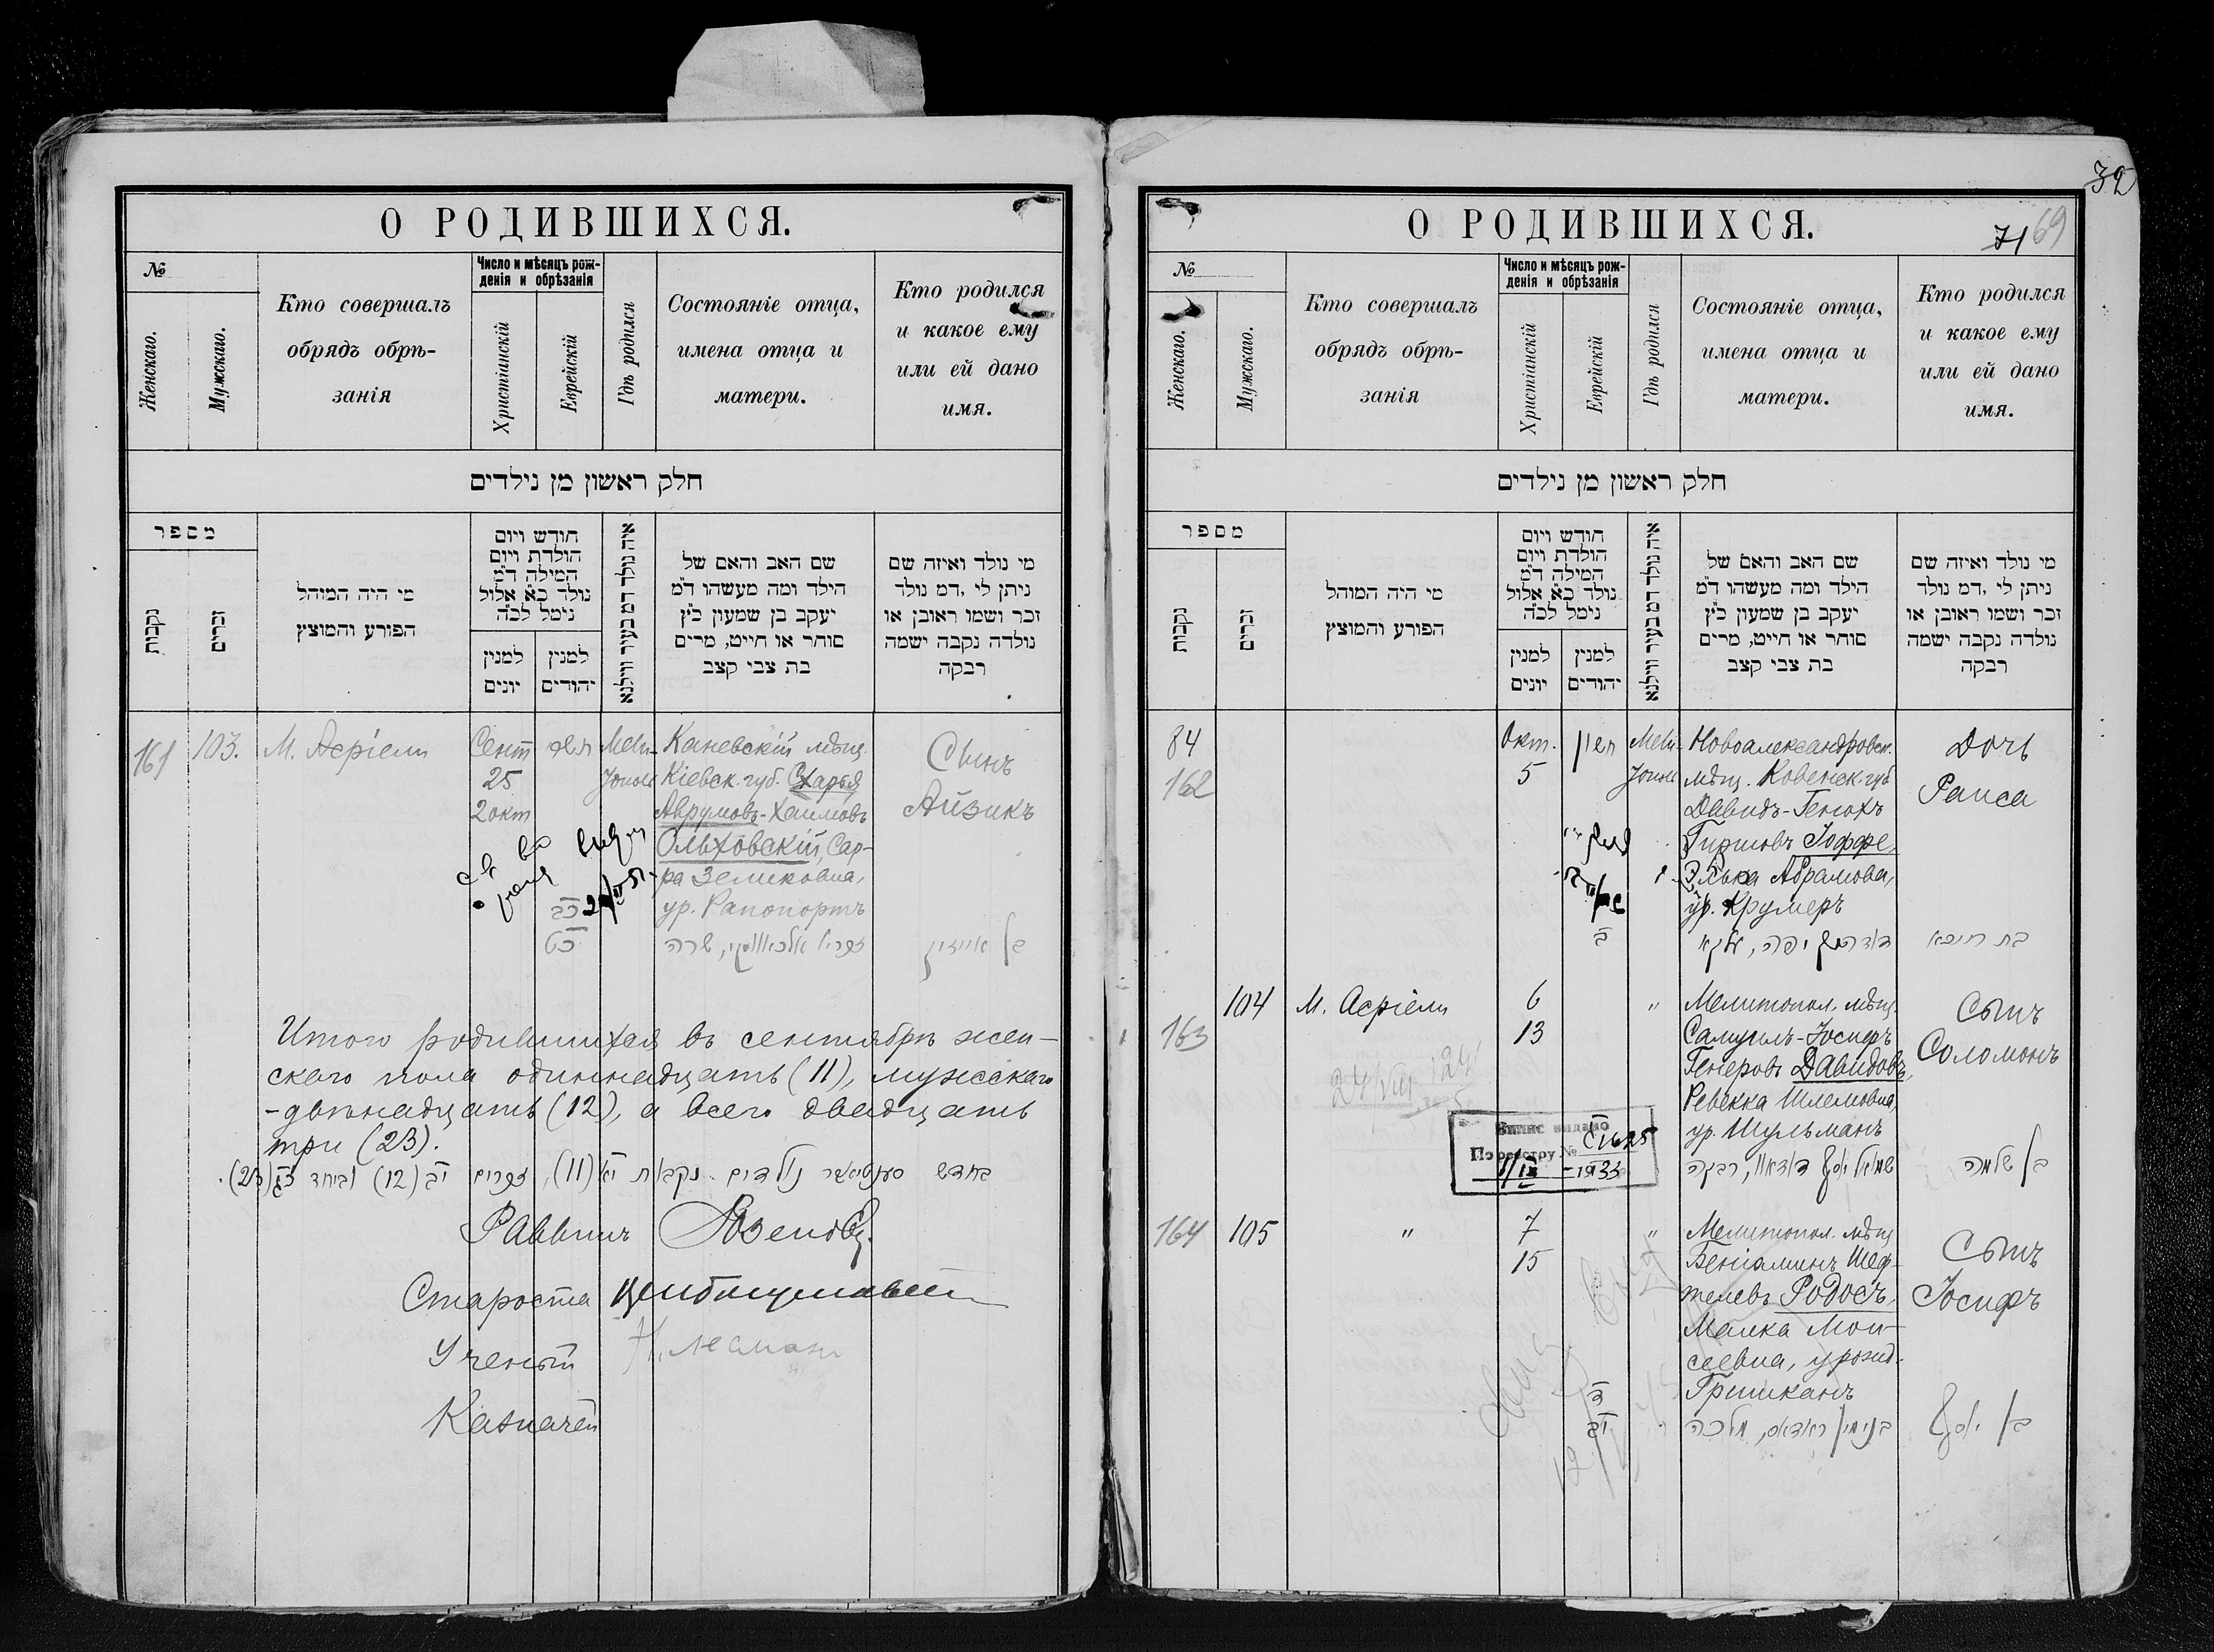 32
О РОДИВШИХСЯ.
№
Женскаго.
Мужскаго.
Кто совершалъ
обрядъ обрѣ-
занія
Число и мѣсяцъ рож-
денія и обрѣзанія
Христіанскій
Еврейскій
Гдѣ родился
Состояніе отца,
имена отца и
матери.
Кто родился
и какое ему
или ей дано
имя.
חלק ראשון מן נילדים
מספר
נקבות
זכרים
מי היה המוהל
הפורע והמוצץ
חודש ויום
הולדת ויום
המילה ד"מ
נולד כ"א אלול
נימל לכ"ה
למנין
יונים
למנין
יהודים
איה נולד דמ בעיר ווילנא
שם האב והאם של
הילד ומה מעשהו ד"מ
יעקב בן שמעון כ"ץ
סוחר או חייט, מרים
בת צבי קצב
מי נולד ואיזה שם
ניתן לי ,דמ נולד
זכר ושמו ראובן או
נולדה נקבה ישמה
רבקה
161
103.
М. Асріели
Сент
25
2 окт
תשרי
כב
כט
Мели-
тополь
Каневскій мѣщ.
Кіевск. губ. Схарья
Аврумовъ-Хаимовъ
Ольховскій, Сар-
ра Зеликовна,
ур. Рапопортъ
Сынъ
Айзикъ
בן אייזיק
Итого родившихся въ сентябрѣ жен-
скаго пола одиннадцать (11), мужскаго
-двѣнадцать (12), а всего двадцать
три (23).
בחדש סענטיאבר נולדים נקבות יא (11), זכרים יב (12) וביחד כג (23).
Раввинъ
Староста
Ученый
Казначей
О РОДИВШИХСЯ.
71 69
№
Женскаго.
Мужскаго.
Кто совершалъ
обрядъ обрѣ-
занія
Число и мѣсяцъ рож-
денія и обрѣзанія
Христіанскій
Еврейскій
Гдѣ родился
Состояніе отца,
имена отца и
матери.
Кто родился
и какое ему
или ей дано
имя.
חלק ראשון מן נילדים
מספר
נקבות
זכרים
מי היה המוהל
הפורע והמוצץ
חודש ויום
הולדת ויום
המילה ד"מ
נולד כ"א אלול
נימל לכ"ה
למנין
יונים
למנין
יהודים
איה נולד דמ בעיר ווילנא
שם האב והאם של
הילד ומה מעשהו ד"מ
יעקב בן שמעון כ"ץ
סוחר או חייט, מרים
בת צבי קצב
מי נולד ואיזה שם
ניתן לי ,דמ נולד
זכר ושמו ראובן או
נולדה נקבה ישמה
רבקה
84
162
Окт.
5
חשון
ב
Мели-
тополь
Новоалександровск.
мѣщ. Ковенск. губ
Давидъ-Генохъ
Гиршовъ Іоффе,
Элька Абрамова,
ур. Крумеръ
Дочь
Раиса
163
104
М. Асріели
6
13
"
Мелитопол. мѣщ.
Самуилъ-Іосифъ
Генеровъ Давидовъ,
Ревекка Шлемовна,
ур. Шульманъ
שמואל יוסף דאוידאוו, רבקה
Сынъ
Соломонъ
בן שלמה
Випис видано
По реєстру № 61625
1/IX - 1933
164
105
"
7
15
יב
"
Мелитопол. мѣщ
Беніаминъ Шеф-
телевъ Родосъ,
Малка Мои-
сеевна, урожд.
Гришканъ
בנימין ראדאס, מלכה
Сынъ
Іосифъ
בן יוסף